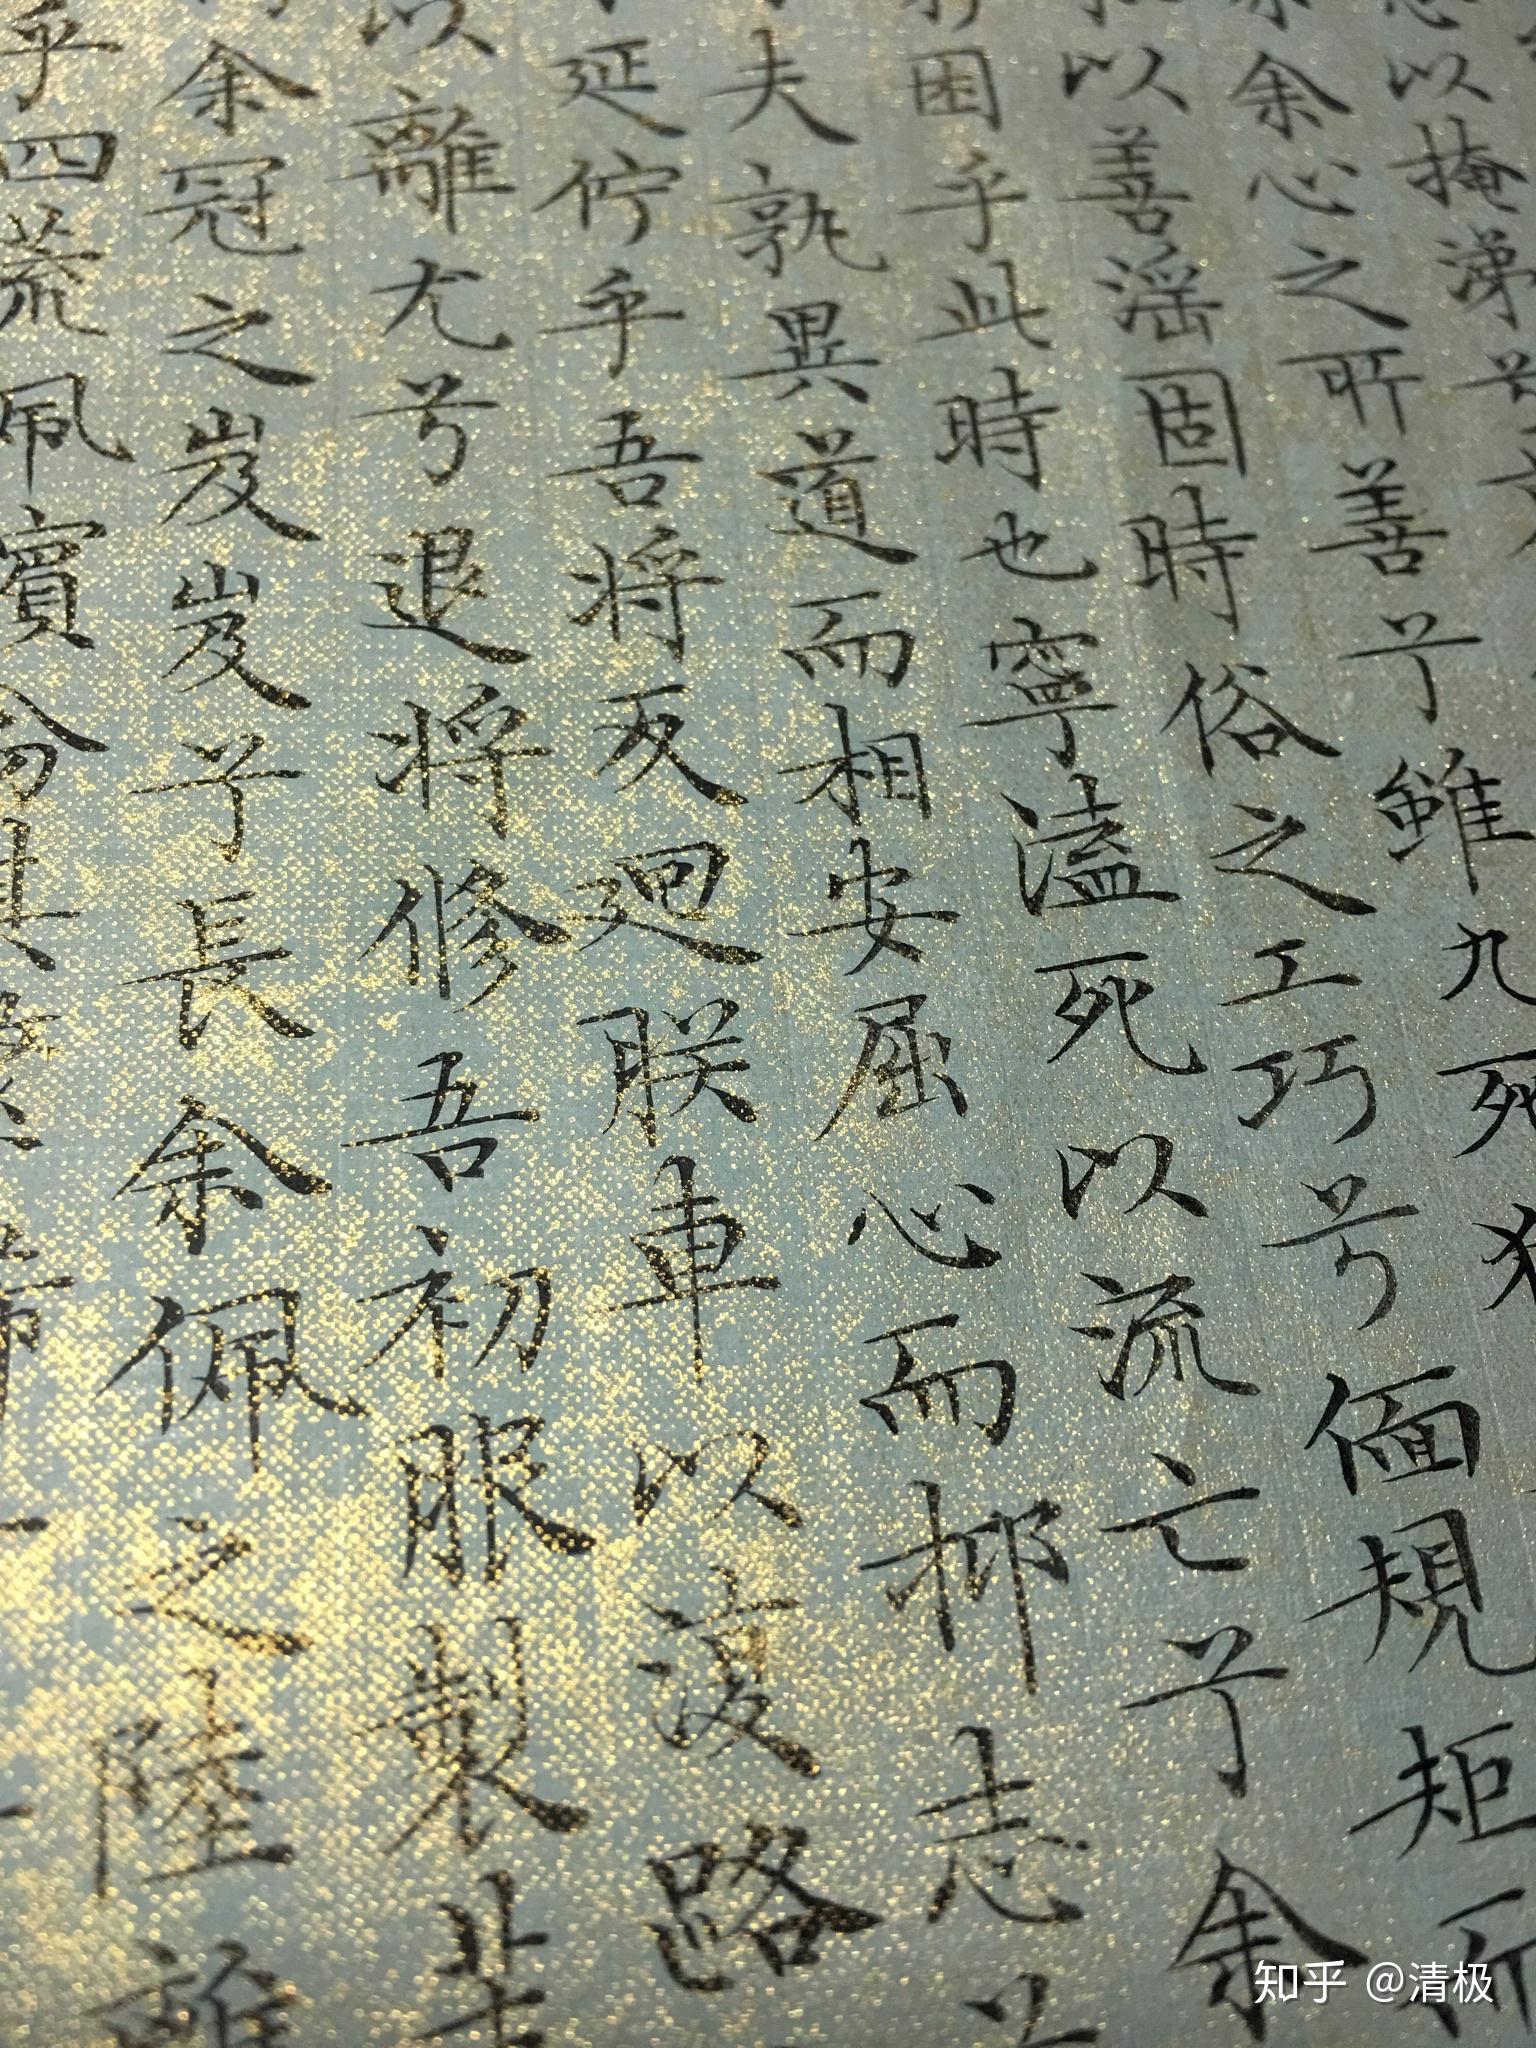 以掩涕兮
余心之所善兮雖九死猶
以善淫固時俗之工巧兮偭規矩
困乎此時也寧溘死以流亡兮余
夫孰異道而相安屈心而抑志
延佇乎吾將反廻朕車以復路
以離尤兮退將修吾初服製芰
余冠之岌岌兮長余佩之陸離
乎四荒佩繽
知乎 @清极